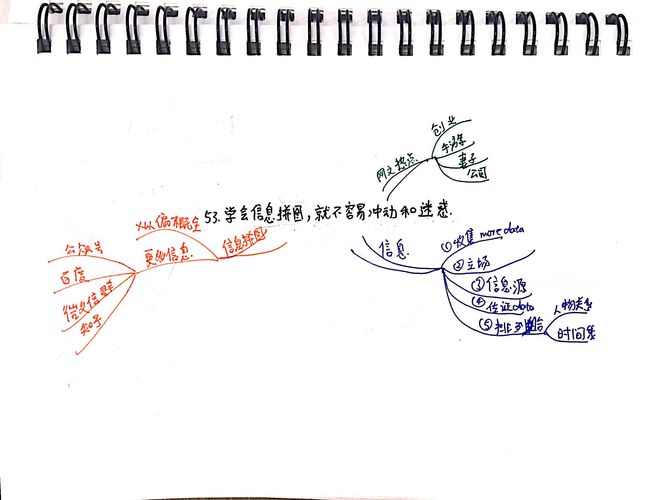 创业
牛津
妻子
公司
网文热点
53.学会信息拼图,就不容易冲动和迷惑.
X以偏概全
信息拼图
更多信息
公众号
百度
微信群
知乎
信息
①收集 more data
②立场
③信息源
④佐证data
⑤排列组合
人物关系
时间系